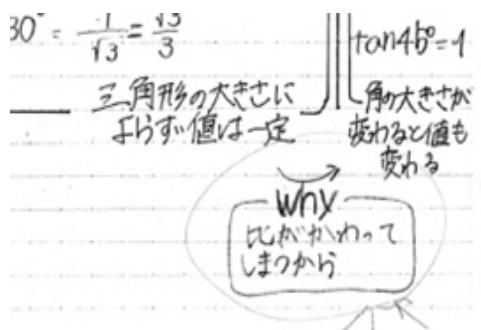 30° = 1/√3 = √3/3
tan45°=1
三角形の大きさに
よらず値は一定
角の大きさが
変わると値も
変わる
why
比がかわって
しまうから